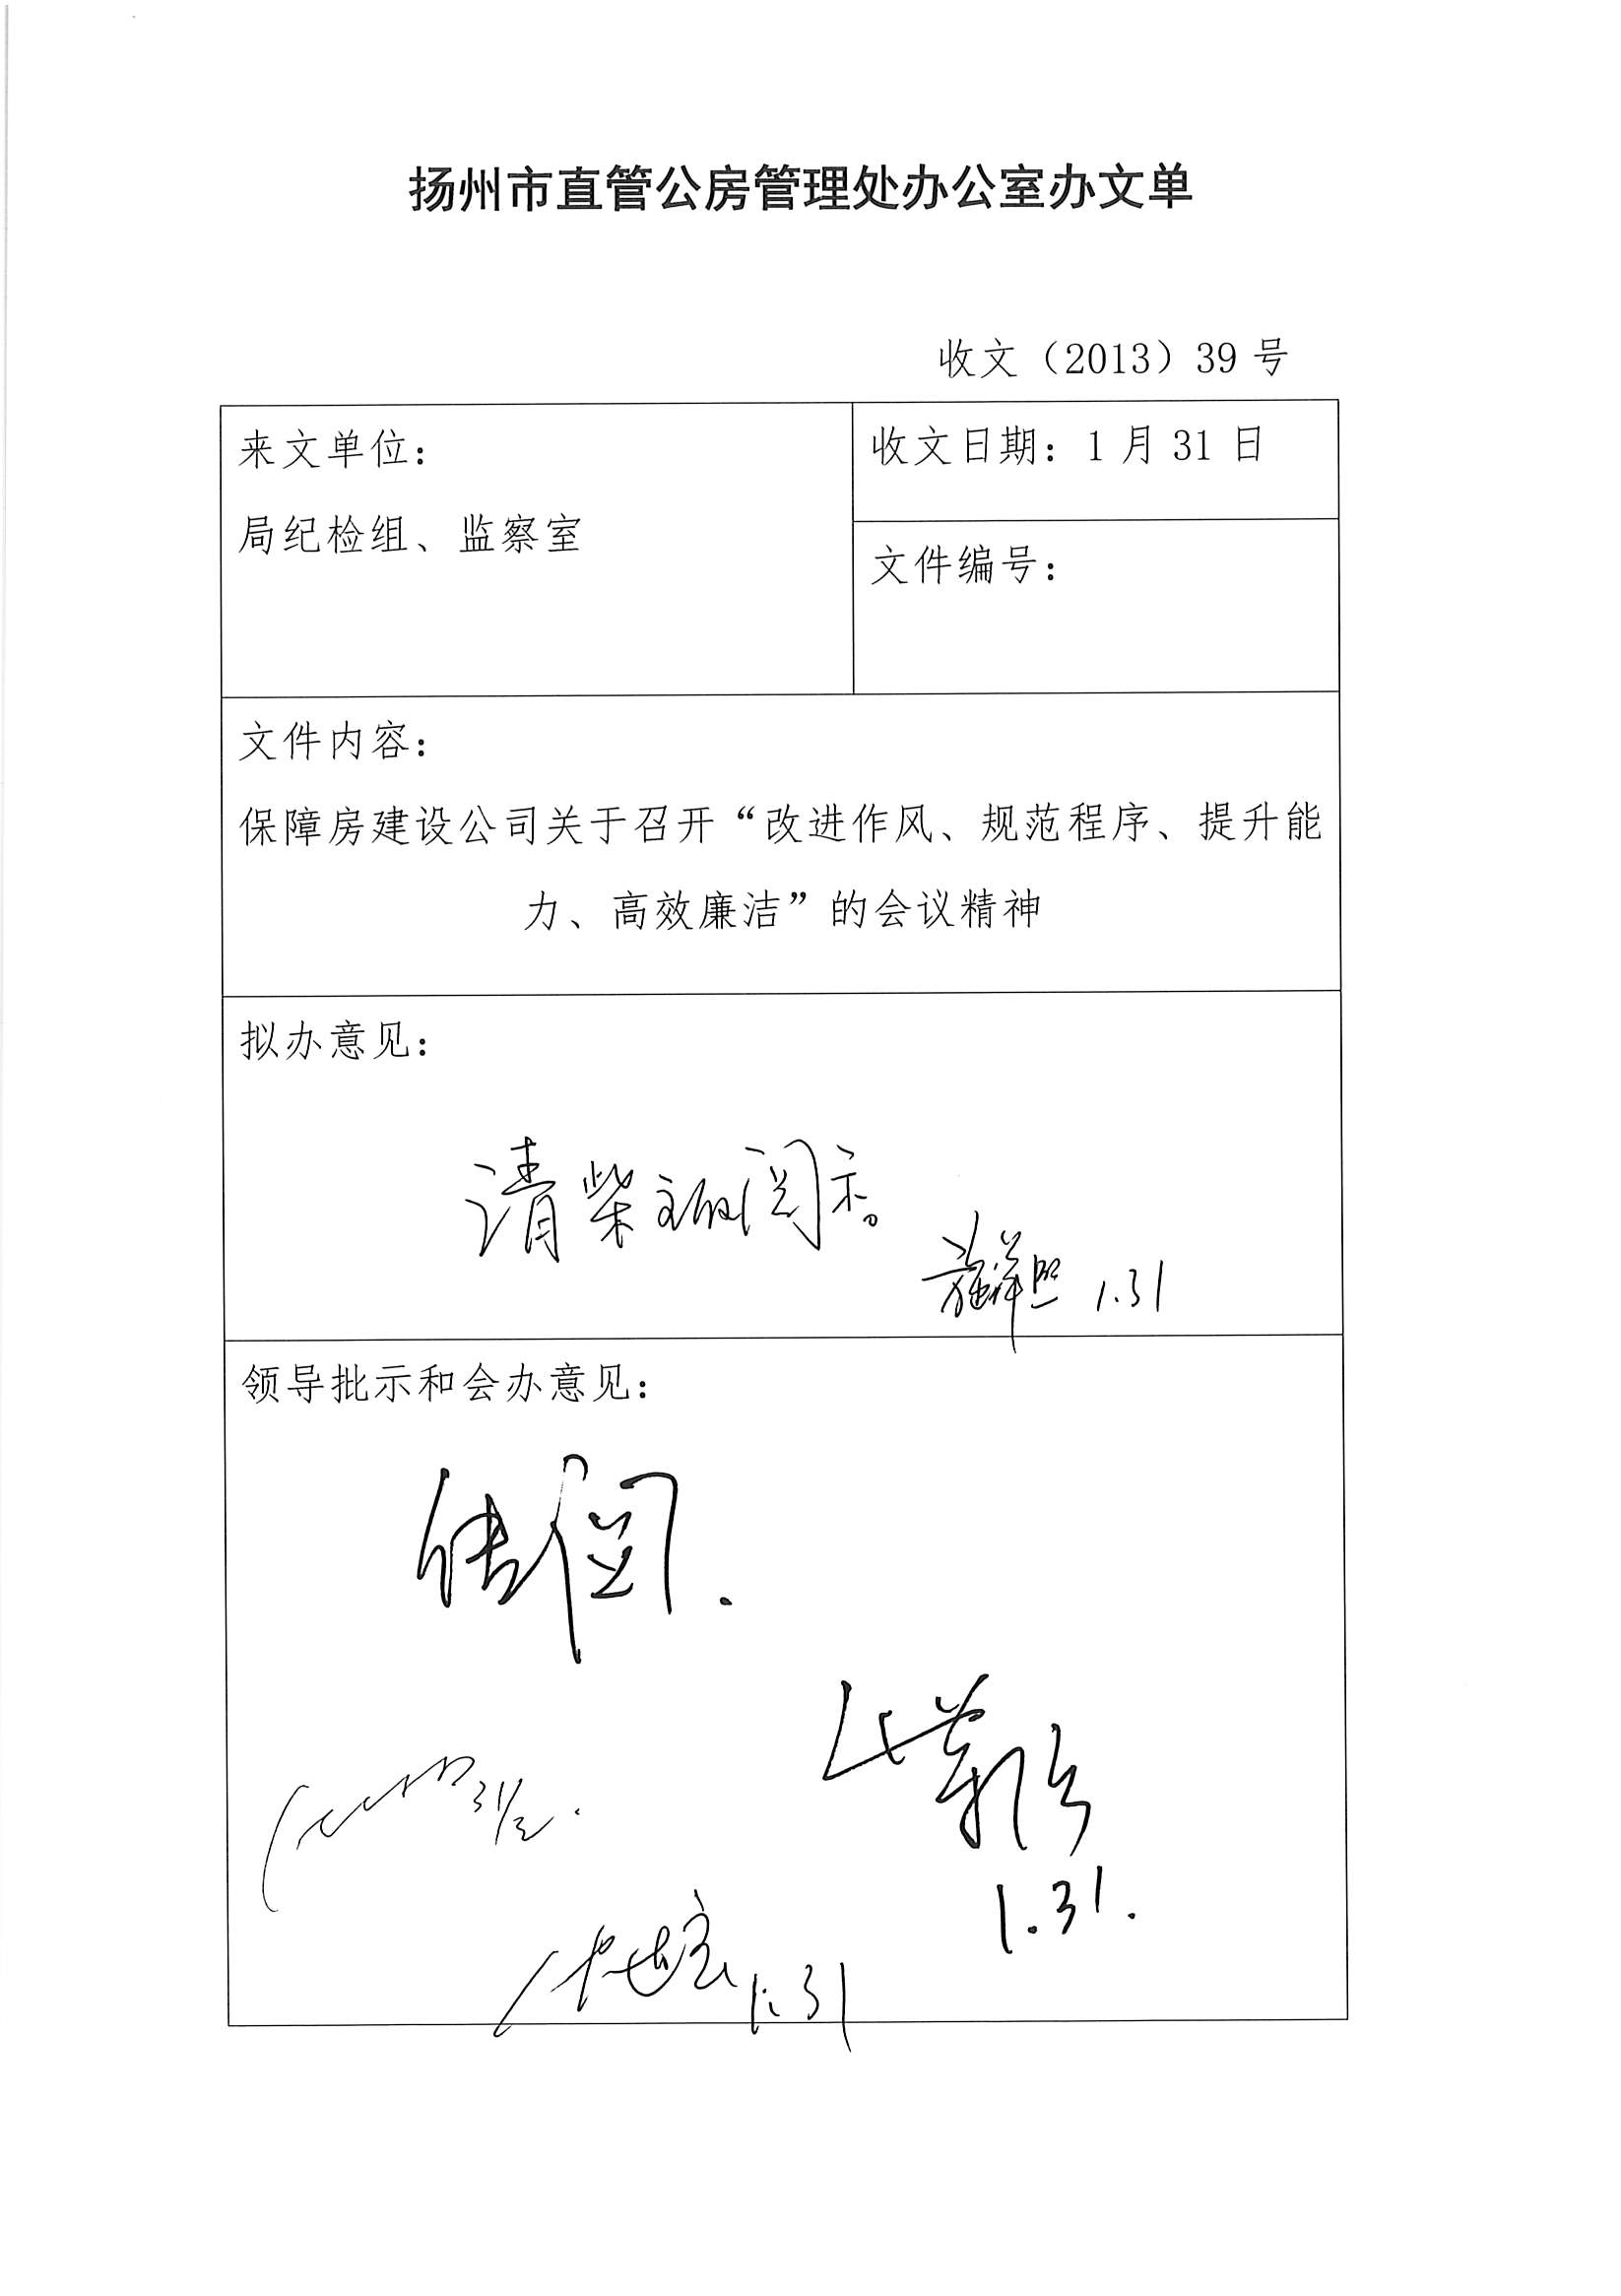 扬州市直管公房管理处办公室办文单
收文（2013）39 号
来文单位：
局纪检组、监察室
收文日期：1 月 31 日
文件编号：
文件内容：
保障房建设公司关于召开“改进作风、规范程序、提升能
力、高效廉洁”的会议精神
拟办意见：
请柴主任阅示。
1.31
领导批示和会办意见：
传阅.
31/1.
1.31.
1.31